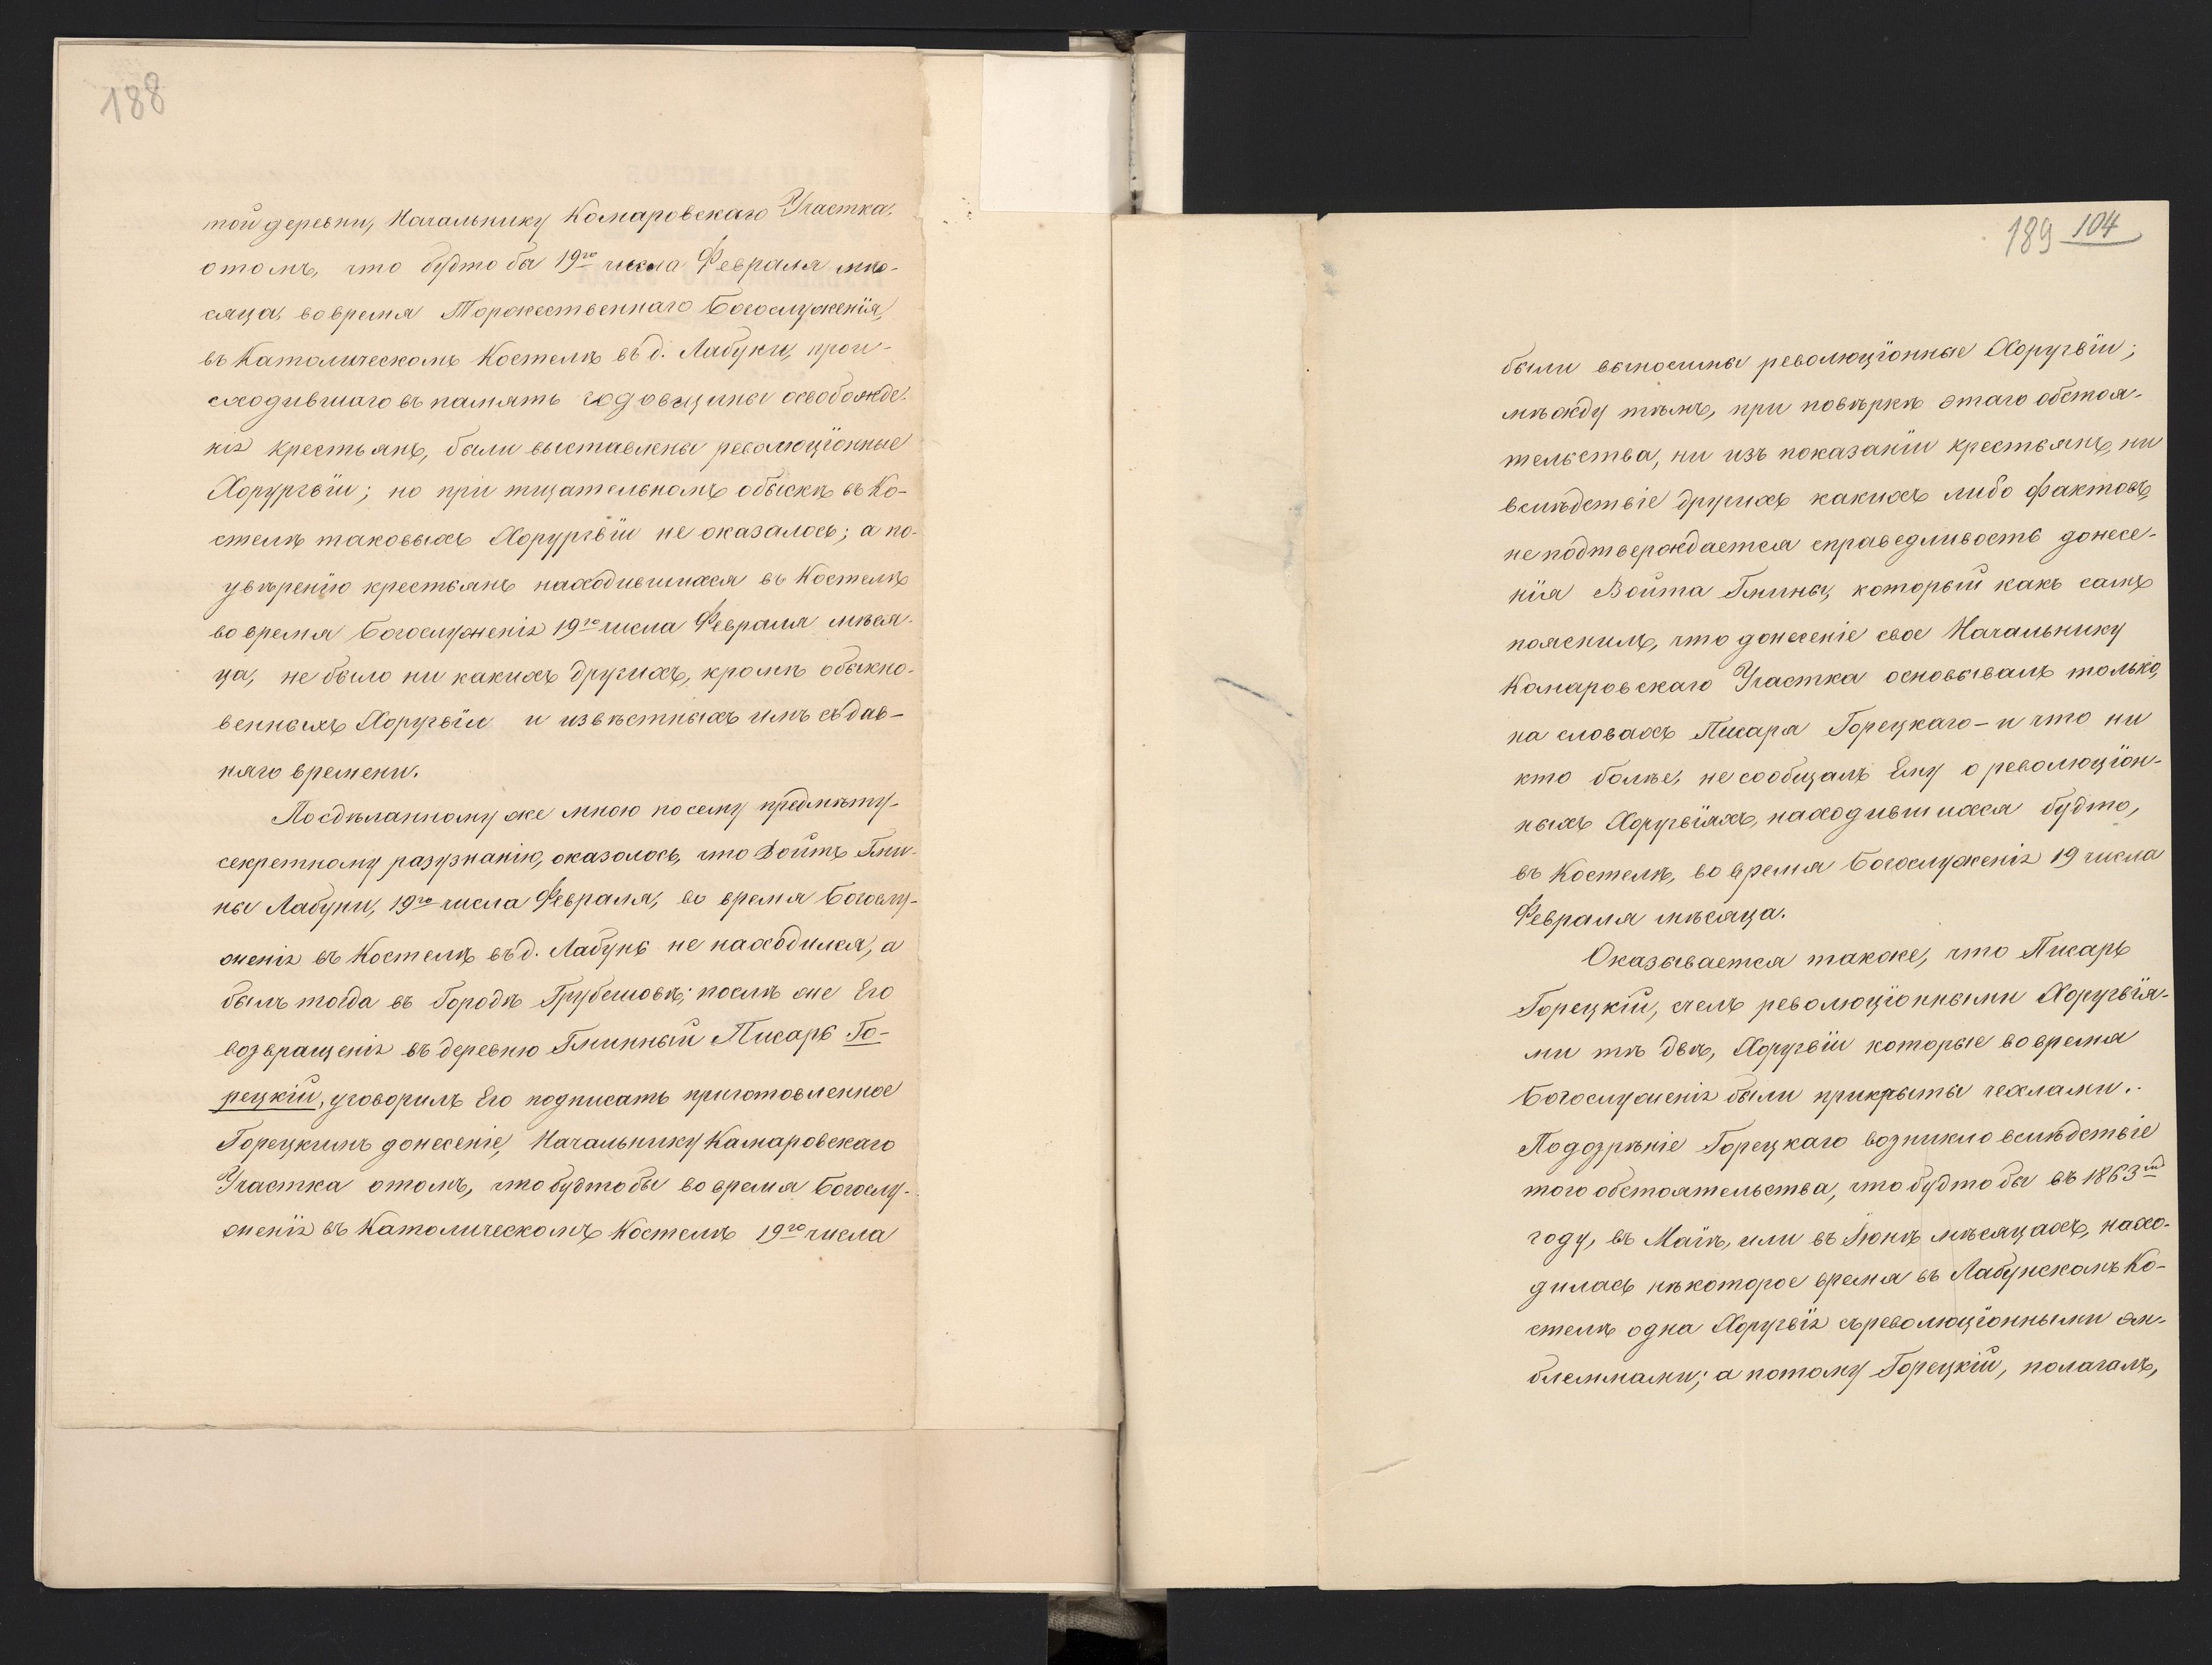 188
той деревни, Начальнику Комаровскаго Участка,
отомъ, что будто бы 19го числа Февраля мѣ-
сяца, вовремя Торжественнаго Богослуженія,
въ Католическомъ Костелѣ въ д. Лабуни, прои-
сходившаго въ память годовщины освобожде-
нія крестьянъ, были выставлены революціонные
Хорургвіи; но при тщательномъ обыскѣ въ Ко-
стелѣ таковыхъ Хорургвіи не оказалось; а по-
увѣренію крестьянъ находившихся въ Костелѣ
во время Богослуженія 19го числа Февраля мѣся-
ца, не было ни какихъ другихъ, кромѣ обыкно-
венныхъ Хоругвіи и извѣстныхъ имъ съ дав-
няго времени.
Посдѣланному же мною по сему предмѣту-
секретному разузнанію, оказалось, что Войтъ Гми-
ны Лабуни, 19го числа Февраля, во время Богослу-
женія въ Костелѣ въ д. Лабунь не находился, а
былъ тогда въ Городѣ Грубешовѣ; послѣ же Его
возвращенія въ деревню Гминный Писарь Го-
рецкій, уговорилъ Его подписать приготовленное
Горецкимъ донесеніе, Начальнику Камаровскаго
Участка отомъ, что будто бы во время Богослу-
женія въ Католическомъ Костелѣ 19го числа
189 104
были выносимы революціонные Хоругвіи;
мѣжду тѣмъ, при повѣркѣ этаго обстоя-
тельства, ни изъ показаніи крестьянъ, ни
вслѣдствіе другихъ какихъ либо фактовъ,
не подтверждается справедливость донесе-
нія Войта Гмины, который какъ самъ
пояснилъ, что донесеніе свое Начальнику
Камаровскаго Участка основывалъ только,
на словахъ Писаря Горецкаго - и что ни
кто болѣе, не сообщалъ Ему о революціон-
ныхъ Хоругвіяхъ, находившихся будто,
въ Костелѣ, во время Богослуженія 19 числа
Февраля мѣсяца.
Оказывается также, что Писарь
Горецкій, счелъ революціонными Хоругвія-
ми тѣ двѣ, Хоругвіи которые во время
Богослуженія были прикрыты чехлами.
Подозрѣніе Горецкаго возникло вслѣдствіе
того обстоятельства, что будто бы въ 1863мъ
году, въ Маіѣ, или въ Іюнѣ мѣсяцахъ, нахо-
дилась нѣкоторое время въ Лабунскомъ Ко-
стелѣ одна Хоругвія съ революціонными эм-
блеммами; а потому Горецкій, полагалъ,